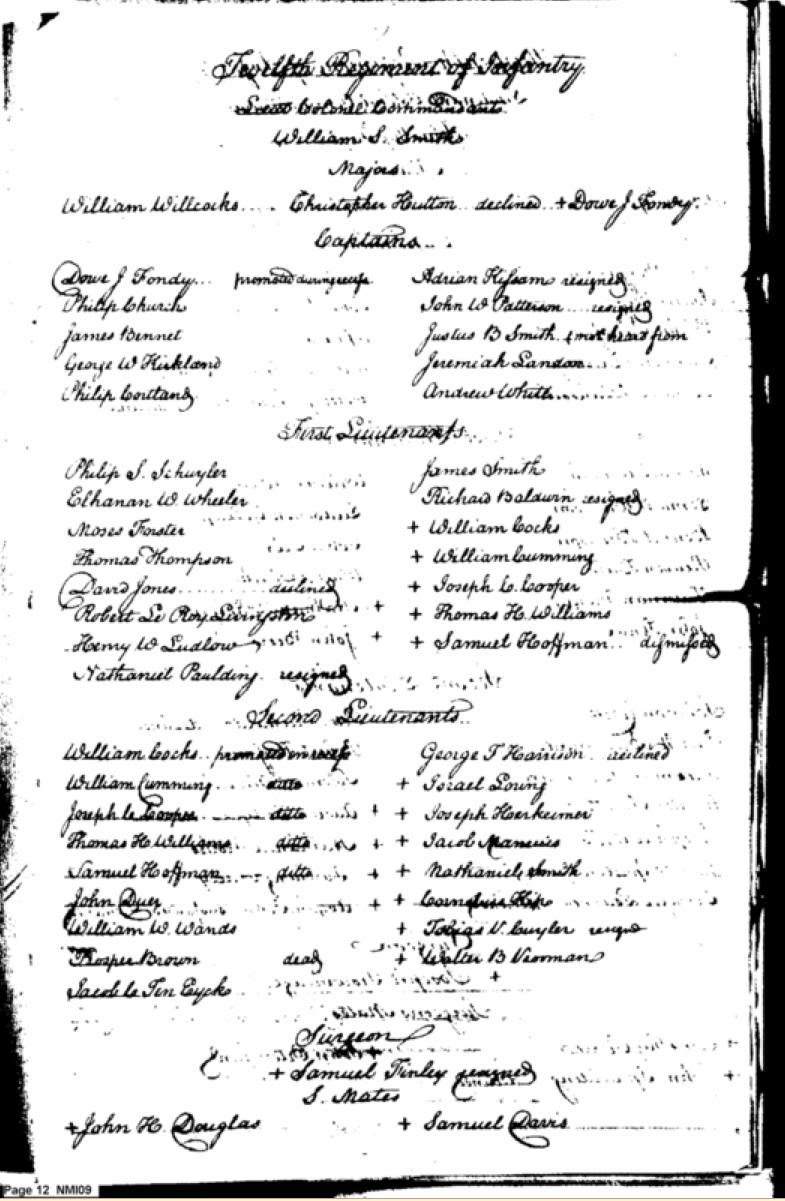 Twelfth Regiment of Infantry
Lieut Colonel Commandant
William S. Smith
Majors
William Willcocks Christopher Hutton declined + Dowe J Fondy
Captains
Dowe J Fondy promoted during recess Adrian Kissam resigned
Philip Church John W Patterson resigned
James Bennet Justus B Smith not heard from
George W Kirkland Jeremiah Landon
Philip Cortland Andrew White
First Lieutenants
Philip S. Schuyler James Smith
Elhanan W. Wheeler Richard Baldwin resigned
Moses Forster + William Cocks
Thomas Thompson + William Cumming
David Jones declined + Joseph C. Cooper
Robert Le Roy Livingston + + Thomas H. Williams
Henry W Ludlow + + Samuel Hoffman dismissed
Nathaniel Paulding resigned
Second Lieutenants
William Cocks promoted in recess George T Harrison declined
William Cumming ditto + Israel Loring
Joseph C Cooper ditto + + Joseph Herkeimer
Thomas H Williams ditto + + Jacob
Samuel Hoffman ditto + + Nathaniel Smith
John Dyer + + Cornelius Kip
William W. Wands + Tobias V. Cuyler resigned
Prosper Brown dead + Walter B Vrooman
Jacob C Ten Eyck +
Surgeon
+ Samuel Finley resigned
S. Mates
+ John H. Douglas + Samuel Davis
Page 12 NMI09